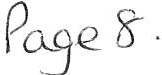 Page 8.